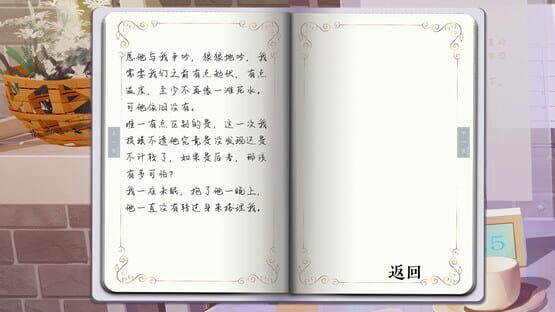 愿他与我争吵，狠狠地吵，我
需要我们之前有点起伏，有点
温度，至少不再像一滩死水。
可他依旧没有。
唯一有点区别的是，这一次我
摸棱不透他究竟是没发现还是
不计较了，如果是后者，那该
有多可怕？
我一夜未眠，抱了他一晚上，
他一直没有转过身来搭理我。
返回
5